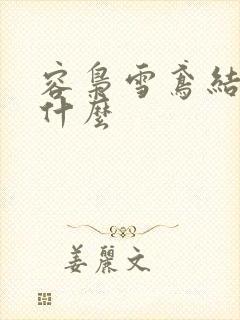 容梟雪鳶結
什麼
姜麗文